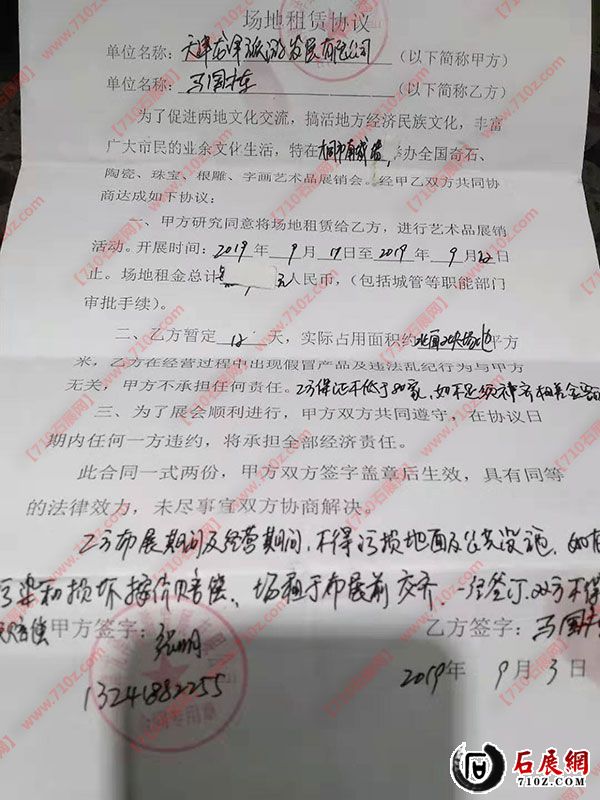 场地租赁协议
单位名称：天津 发展有限公司（以下简称甲方）
单位名称：马国栋（以下简称乙方）
为了促进两地文化交流，搞活地方经济民族文化，丰富
广大市民的业余文化生活，特在 办全国奇石、
陶瓷、珠宝、根雕、字画艺术品展销会。经甲乙双方共同协
商达成如下协议：
一、甲方研究同意将场地租赁给乙方，进行艺术品展销
活动。开展时间：2019年9月 日至2019年9月22日
止。场地租金总计 元人民币，（包括城管等职能部门
审批手续）。
二、乙方暂定12天，实际占用面积约 平方
米，乙方在经营过程中出现假冒产品及违法乱纪行为与甲方
无关，甲方不承担任何责任。乙方保证不低于80家，如不足
三、为了展会顺利进行，甲方双方共同遵守，在协议日
期内任何一方违约，将承担全部经济责任。
此合同一式两份，甲方双方签字盖章后生效，具有同等
的法律效力，未尽事宜双方协商解决。
乙方布展期间及经营期间，不得污损地面及公共设施，如有
污染和损坏按价赔偿、场租于布展前交齐，一经签订，双方不得
赔偿
甲方签字：张明
乙方签字：马国栋
13241882255
2019年9月3日
合同专用章
【710石展网】
www.710z.com
石展網
710Z.COM